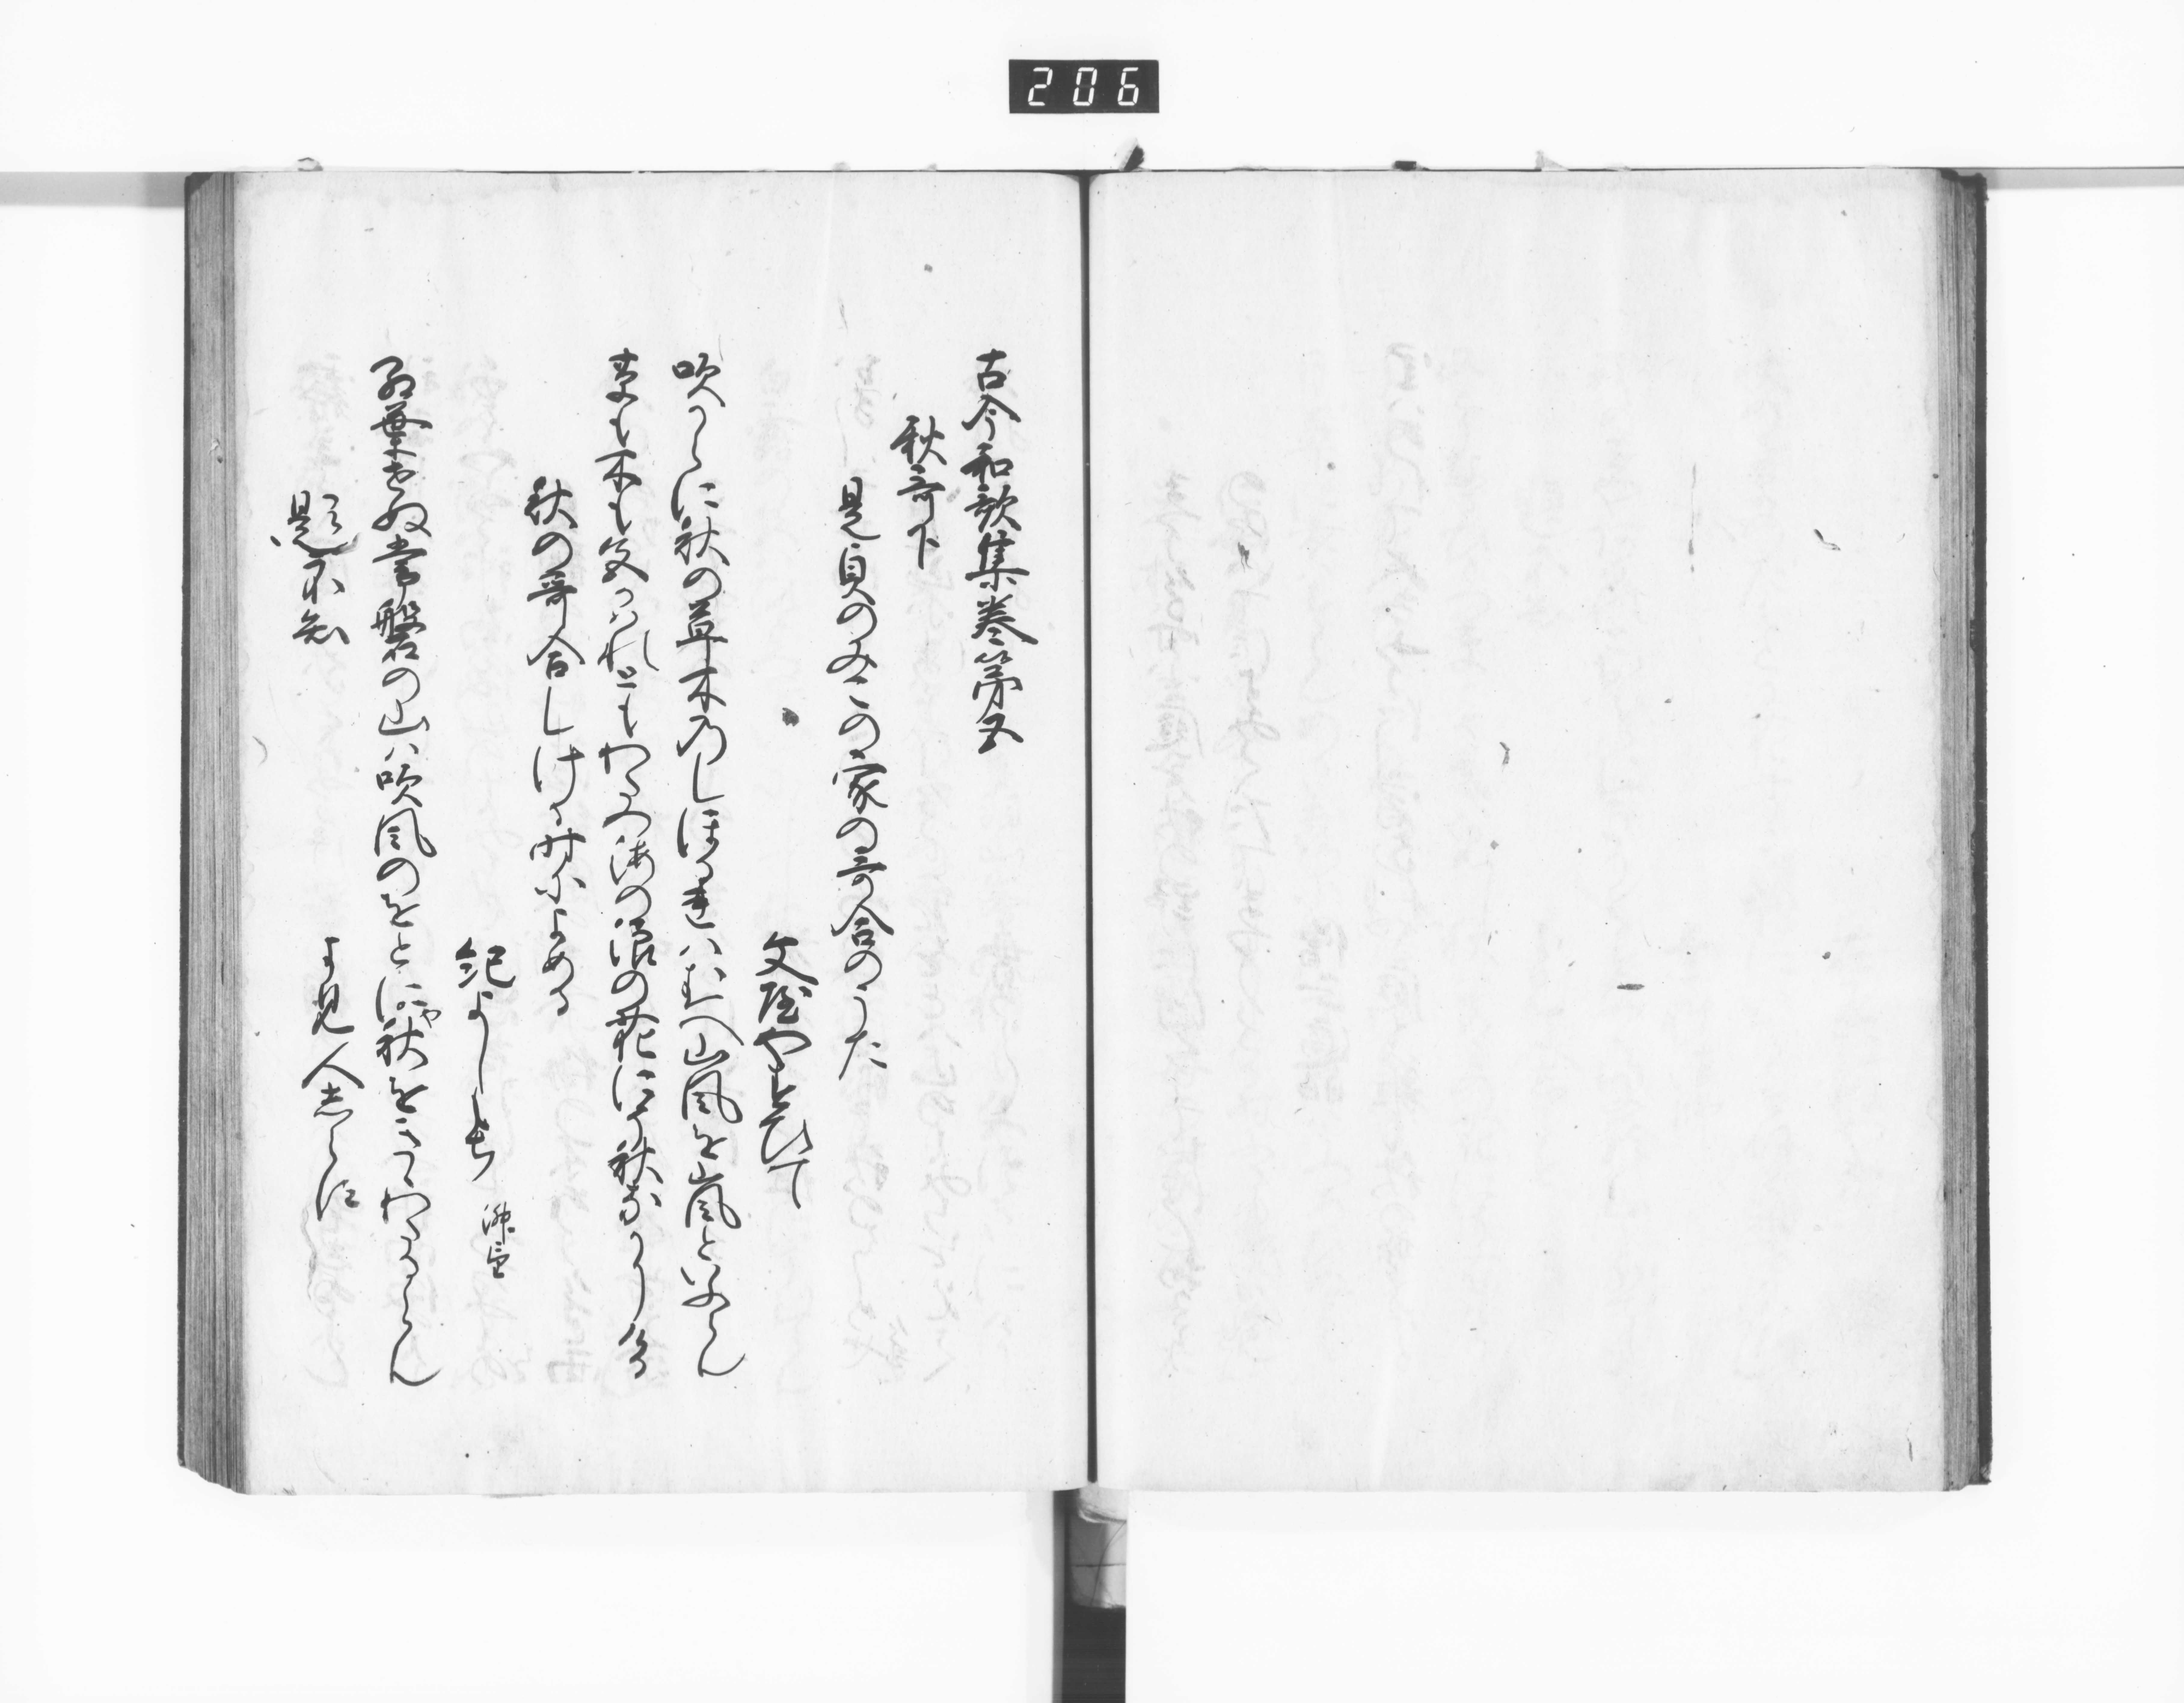 206
古今和歌集巻第五
秋哥下
是貞のみこの家の哥合のうた
文屋やすひて
吹からに秋の草木のしほるれはむへ山風を嵐といふらん
草も木も色かはれともわたつ海の浪の花にそ秋なかりける
秋の哥合しける時によめる
紀よしもち
紅葉せぬ常磐の山は吹風のをとにや秋をきゝわたるらん
題不知
よ見人志らす